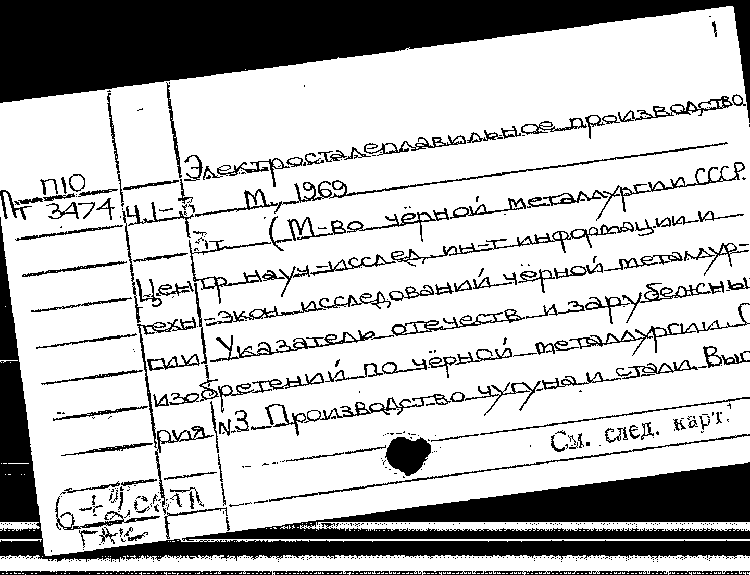 1
Электросталеплавильное производство
П10
Пт 3474
Ч.1-3 М., 1969
3т. (М-во чёрной металлургии СССР.
Центр. науч.-исслед. ин-т информации и
техн.-экон. исследований чёрной металлур-
гии. Указатель отечеств. и зарубежны
изобретений по чёрной металлургии. С
рия №3. Производство чугуна и стали. Вып
См. след. карт.
6+2